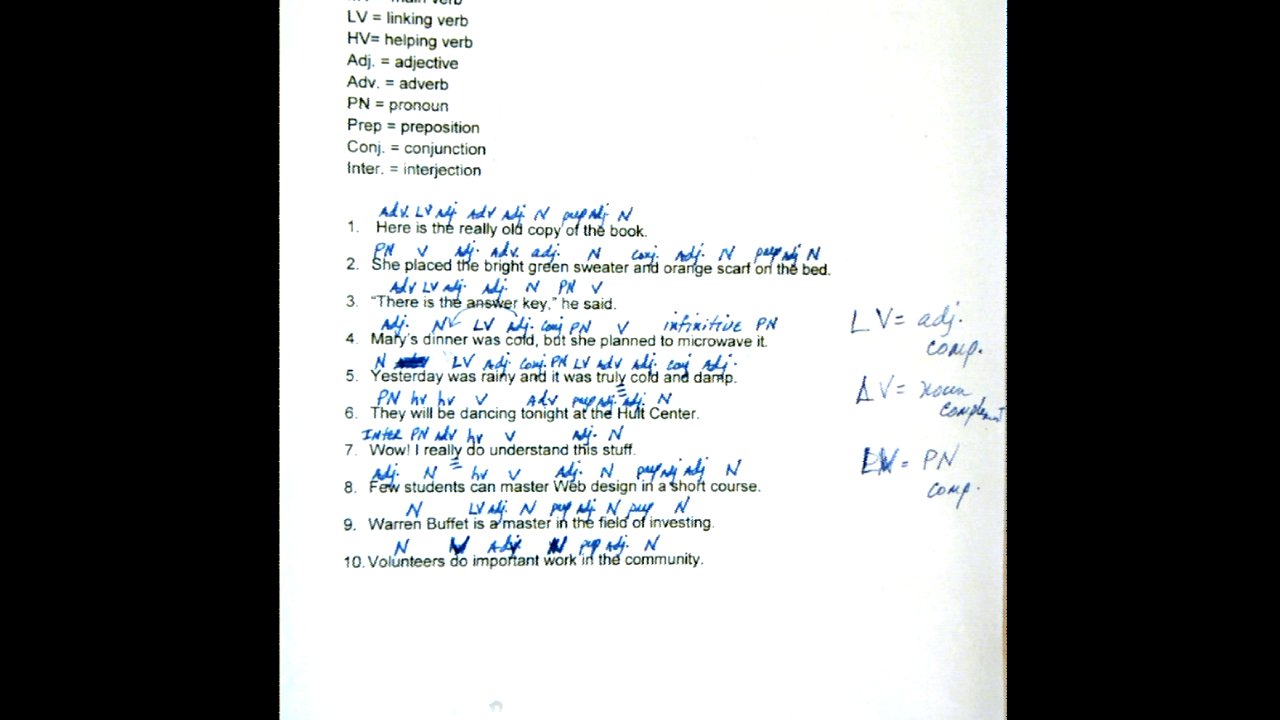 main verb
LV = linking verb
HV= helping verb
Adj. = adjective
Adv. = adverb
PN = pronoun
Prep = preposition
Conj. = conjunction
Inter. = interjection
Adv. LV Adj Adv Adj. N prep Adj. N
1. Here is the really old copy of the book.
PN V Adj. Adv. adj. N conj. Adj. N prep Adj N
2. She placed the bright green sweater and orange scarf on the bed.
Adv LV adj. Adj. N PN V
3. "There is the answer key," he said.
Adj. N LV Adj. conj PN V infinitive PN
4. Mary's dinner was cold, but she planned to microwave it.
LV = adj. comp.
N LV Adj. conj. PN LV adv Adj. conj Adj.
5. Yesterday was rainy and it was truly cold and damp.
LV = noun complement
PN hv hv V Adv prep Adj. adj. N
6. They will be dancing tonight at the Hult Center.
Inter PN adv hv V Adj. N
7. Wow! I really do understand this stuff.
LV = PN comp.
Adj. N hv V Adj. N prep adj Adj N
8. Few students can master Web design in a short course.
N LV adj. N prep Adj N prep N
9. Warren Buffet is a master in the field of investing.
N V Adj N prep Adj. N
10. Volunteers do important work in the community.